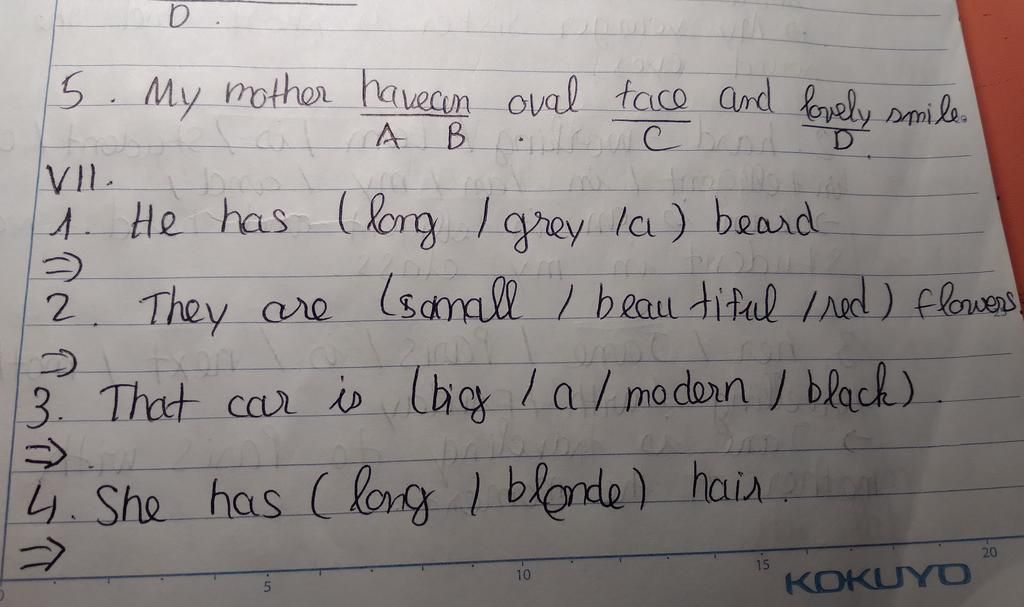 D.
5. My mother havean oval face and lovely smile.
A B C D.
VII.
1. He has (long / grey / a) beard
⇒
2. They are (samall / beautiful / red) flowers
⇒
3. That car is (big / a / modern / black).
⇒
4. She has (long / blonde) hair.
⇒
5 10 15 20
KOKUYO